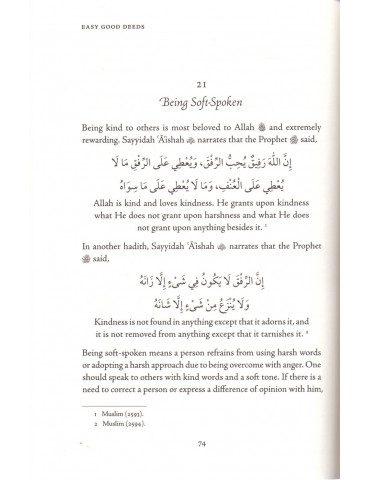 EASY GOOD DEEDS
21
Being Soft-Spoken
Being kind to others is most beloved to Allah ﷻ and extremely
rewarding. Sayyidah ʿĀʾishah narrates that the Prophet ﷺ said,
إِنَّ اللّٰهَ رَفِيقٌ يُحِبُّ الرِّفْقَ، وَيُعْطِي عَلَى الرِّفْقِ مَا لَا
يُعْطِي عَلَى الْعُنْفِ، وَمَا لَا يُعْطِي عَلَى مَا سِوَاهُ
Allah is kind and loves kindness. He grants upon kindness
what He does not grant upon harshness and what He does
not grant upon anything besides it. 1
In another hadith, Sayyidah ʿĀʾishah narrates that the Prophet
ﷺ said,
إِنَّ الرِّفْقَ لَا يَكُونُ فِي شَيْءٍ إِلَّا زَانَهُ
وَلَا يُنْزَعُ مِنْ شَيْءٍ إِلَّا شَانَهُ
Kindness is not found in anything except that it adorns it, and
it is not removed from anything except that it tarnishes it. 2
Being soft-spoken means a person refrains from using harsh words
or adopting a harsh approach due to being overcome with anger. One
should speak to others with kind words and a soft tone. If there is a
need to correct a person or express a difference of opinion with him,
1 Muslim (2593).
2 Muslim (2594).
74